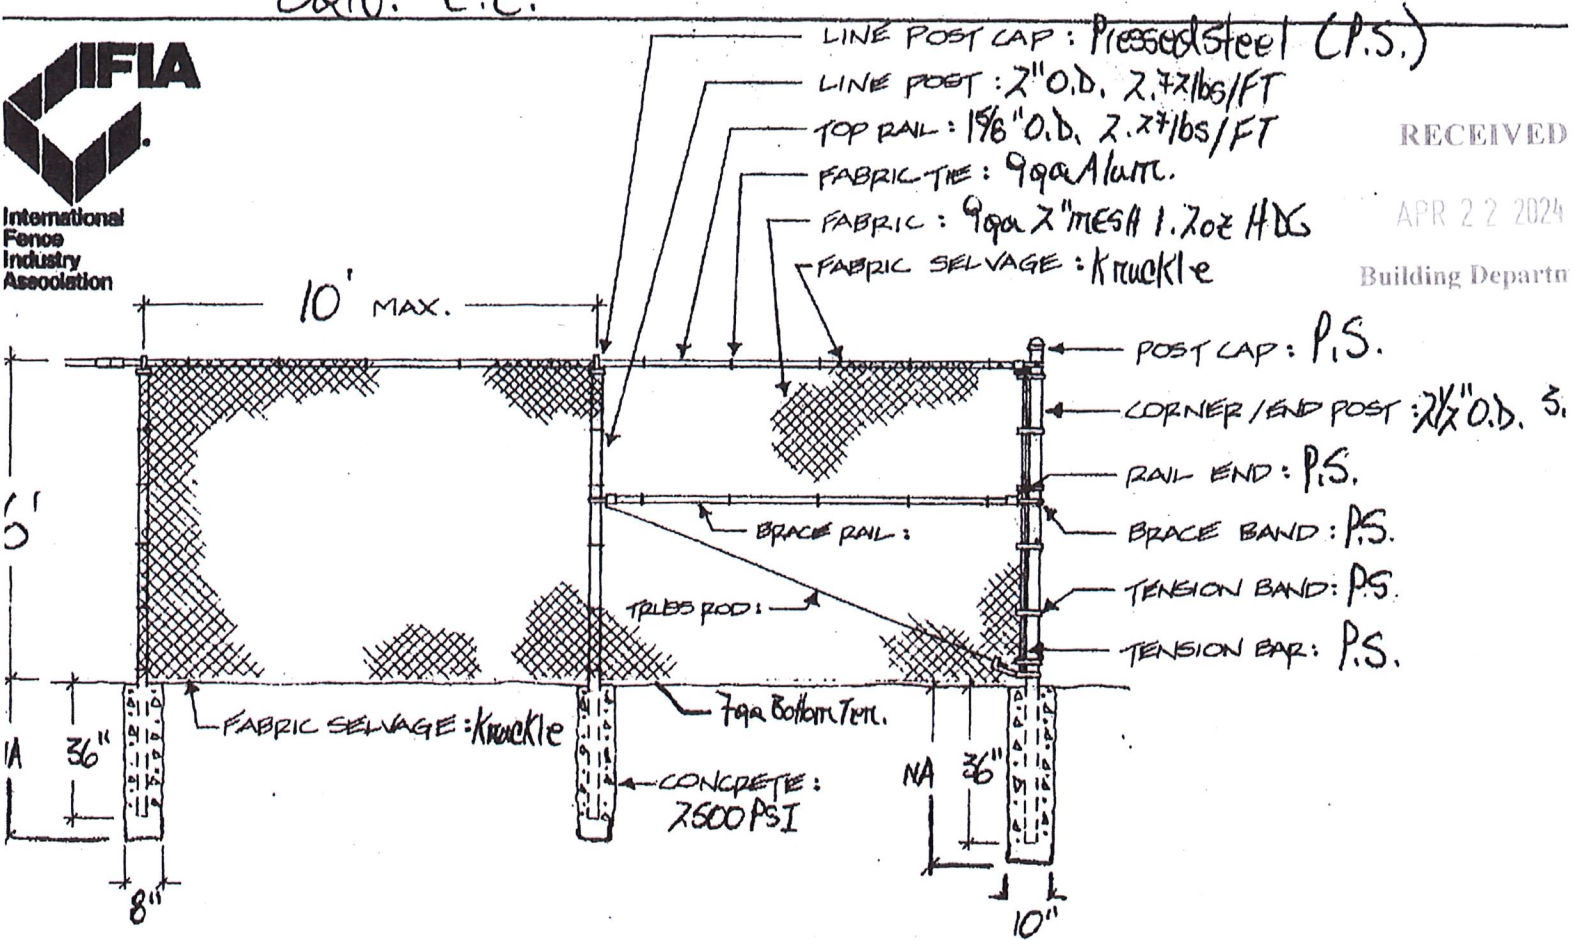 IFIA
International
Fence
Industry
Association
LINE POST CAP: Pressed Steel (P.S.)
LINE POST: 2" O.D. 2.72 lbs/FT
TOP RAIL: 1 5/8" O.D. 2.27 lbs/FT
FABRIC TIE: 9ga Alum.
FABRIC: 9ga 2" MESH 1.2oz HDG
FABRIC SELVAGE: Knuckle
RECEIVED
APR 22 2024
Building Departm
10' MAX.
6'
POST CAP: P.S.
CORNER/END POST: 2 1/2" O.D. 3.
RAIL END: P.S.
BRACE RAIL:
BRACE BAND: P.S.
TRUSS ROD:
TENSION BAND: P.S.
TENSION BAR: P.S.
FABRIC SELVAGE: Knuckle
7ga Bottom Ten.
NA 36"
CONCRETE:
2500 PSI
NA 36"
8"
10"